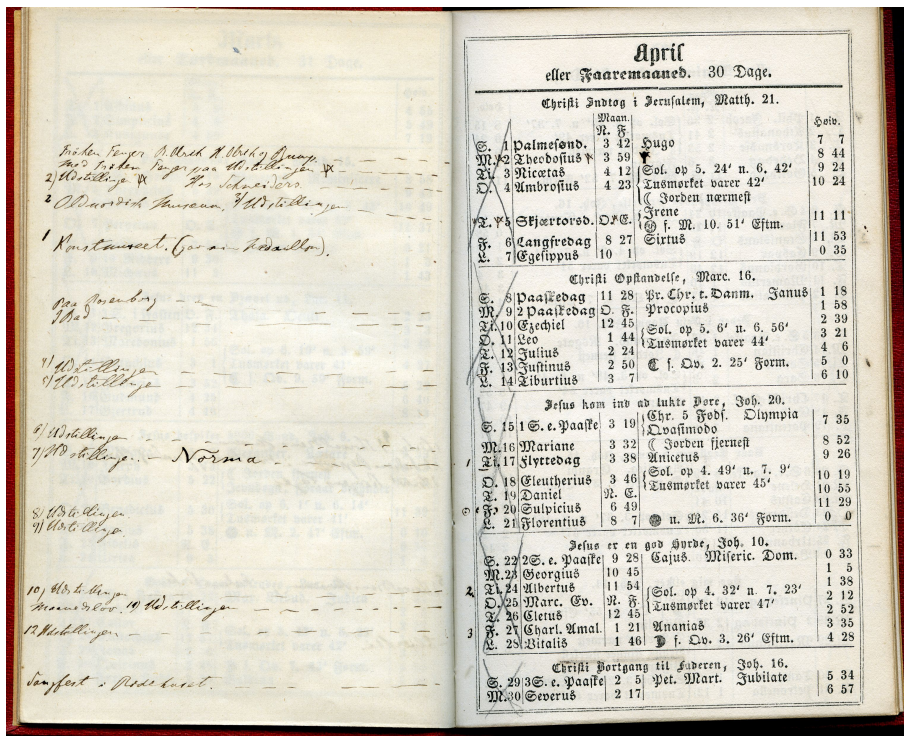 Frøken Fenger
med Frøken Fenger paa Udstillingen
2) Udstillingen Hos Schneiders.
2 Oldnordisk Museum, 3/ Udstillingen
1 Kunstmuseet.
Paa Rosenborg
I Bad
4/ Udstillingen
5/ Udstillingen
6/ Udstillingen
7/ Udstillingen. Norma
8/ Udstillingen
9/ Udstillingen
10/ Udstillingen
11/ Udstillingen
12 Udstillingen
Sangfest i Ridehuset.
April
eller Faaremaaned. 30 Dage.
Christi Indtog i Jerusalem, Matth. 21.
Maan. N. F. Høiv.
S. 1 Palmesønd. 3 42 Hugo 7 7
M. 2 Theodosius 3 59 8 44
Ti. 3 Nicætas 4 12 Sol. op 5. 24' n. 6. 42' 9 24
O. 4 Ambrosius 4 23 Tusmørket varer 42' 10 24
☾ Jorden nærmest
T. 5 Skjærtorsd. O. E. Irene 11 11
f. M. 10. 51' Eftm.
F. 6 Langfredag 8 27 Sixtus 11 53
L. 7 Egesippus 10 1 0 35
Christi Opstandelse, Marc. 16.
S. 8 Paaskedag 11 28 Pr. Chr. t. Danm. Janus 1 18
M. 9 2 Paaskedag O. F. Procopius 1 58
Ti. 10 Ezechiel 12 45 2 39
O. 11 Leo 1 44 Sol. op 5. 6' n. 6. 56' 3 21
T. 12 Julius 2 24 Tusmørket varer 44' 4 6
F. 13 Justinus 2 50 ☾ s. Qv. 2. 25' Form. 5 0
L. 14 Tiburtius 3 7 6 10
Jesus kom ind ad lukte Døre, Joh. 20.
S. 15 1 S. e. Paaske 3 19 Chr. 5 Føds. Olympia 7 35
Qvasimodo
M. 16 Mariane 3 32 ☾ Jorden fjernest 8 52
1 Ti. 17 Flyttedag 3 38 Anicetus 9 26
O. 18 Eleutherius 3 46 Sol. op 4. 49' n. 7. 9' 10 19
T. 19 Daniel N. E. Tusmørket varer 45' 10 55
F. 20 Sulpicius 6 49 11 29
L. 21 Florentius 8 7 n. M. 6. 36' Form. 0 0
Jesus er en god Hyrde, Joh. 10.
S. 22 2 S. e. Paaske 9 28 Cajus. Miseric. Dom. 0 33
M. 23 Georgius 10 45 1 5
Ti. 24 Albertus 11 54 1 38
2 O. 25 Marc. Ev. N. F. Sol. op 4. 32' n. 7. 23' 2 12
T. 26 Cletus 12 45 Tusmørket varer 47' 2 52
3 F. 27 Charl. Amal. 1 21 Ananias 3 35
L. 28 Vitalis 1 46 ☽ f. Qv. 3. 26' Eftm. 4 28
Christi Bortgang til Faderen, Joh. 16.
S. 29 3 S. e. Paaske 2 5 Pet. Mart. Jubilate 5 34
M. 30 Severus 2 17 6 57